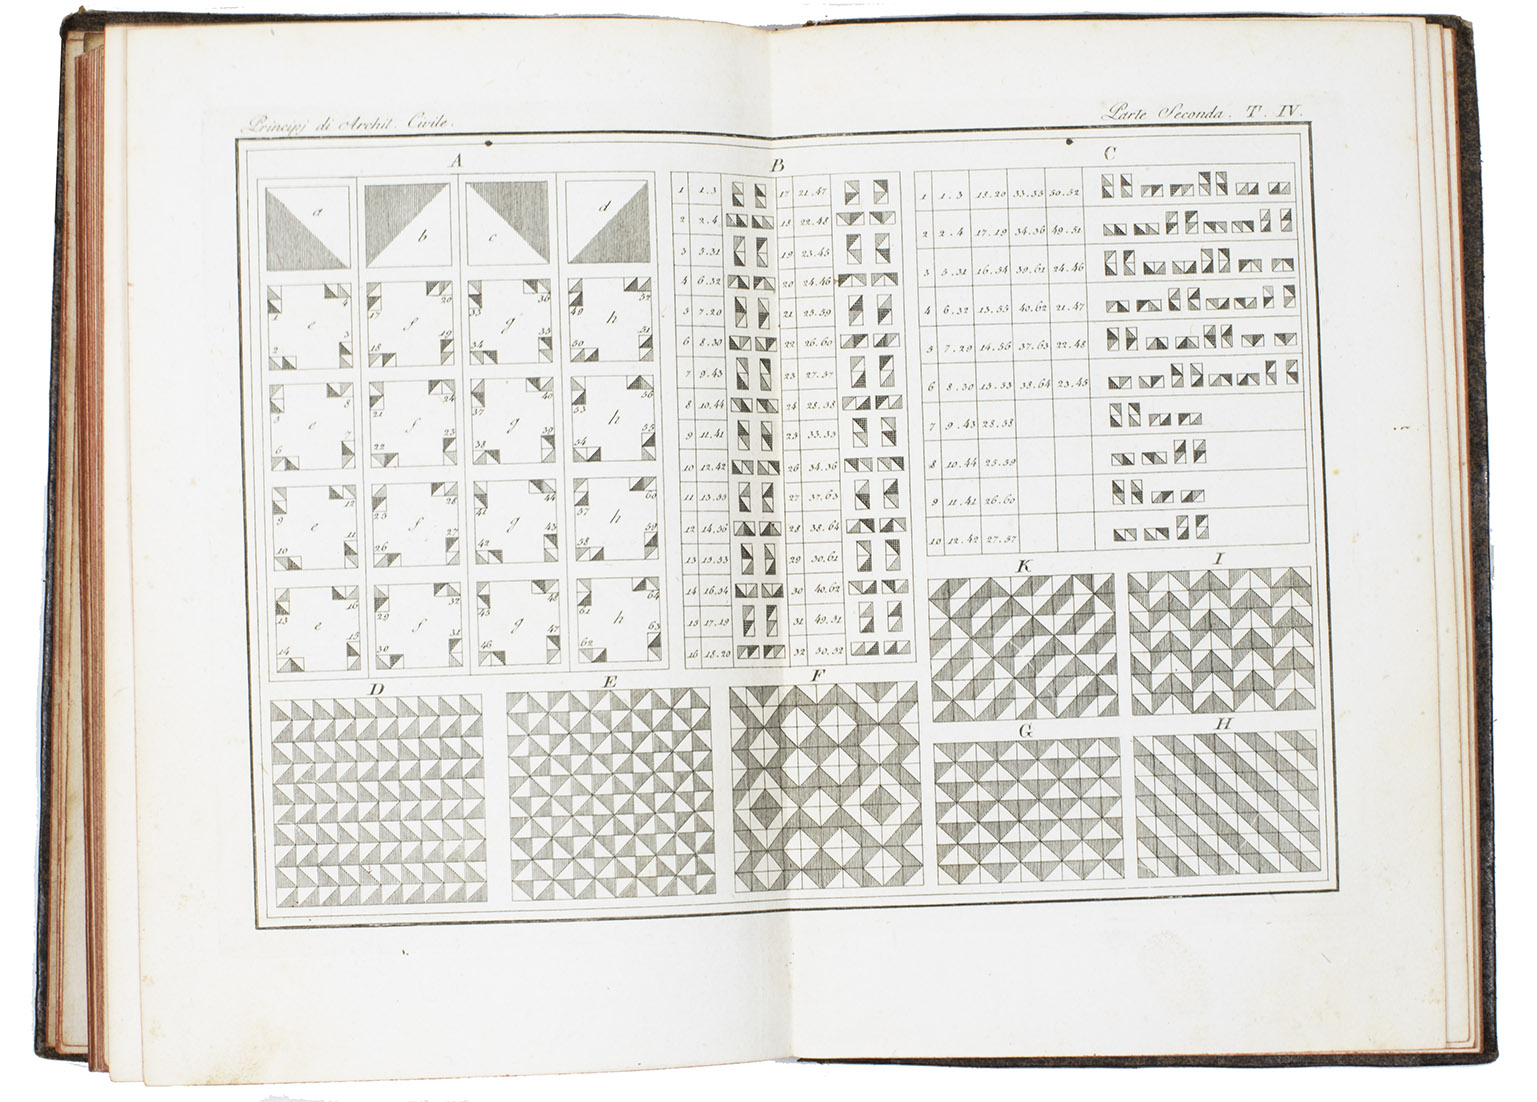 Principj di Archit. Civile.
Parte Seconda. T. IV.
A
B
C
a
b
c
d
1
4
3
2
e
17
20
19
18
f
33
36
35
34
g
49
52
51
50
h
5
8
7
6
e
21
24
23
22
f
37
40
39
38
g
53
56
55
54
h
9
12
11
10
e
25
28
27
26
f
41
44
43
42
g
57
60
59
58
h
13
16
15
14
e
29
32
31
30
f
45
48
47
46
g
61
64
63
62
h
1 1.3
2 2.4
3 5.31
4 6.32
5 7.29
6 8.30
7 9.43
8 10.44
9 11.41
10 12.42
11 13.55
12 14.56
13 15.53
14 16.54
15 17.19
16 18.20
17 21.47
18 22.48
19 23.45
20 24.46
21 25.59
22 26.60
23 27.57
24 28.58
25 33.35
26 34.36
27 37.63
28 38.64
29 39.61
30 40.62
31 49.51
32 50.52
1 1.3 18.20 33.35 50.52
2 2.4 17.19 34.36 49.51
3 5.31 16.54 39.61 24.46
4 6.32 13.55 40.62 21.47
5 7.29 14.56 37.63 22.48
6 8.30 15.53 38.64 23.45
7 9.43 28.58
8 10.44 25.59
9 11.41 26.60
10 12.42 27.57
K
I
D
E
F
G
H